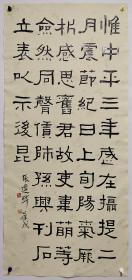 惟中平三年歲在攝提二
月震節紀日上旬陽氣厥
析感思舊君故吏韋萌等
僉然同聲賃師孫興刊石
立表以示後昆
張遷碑